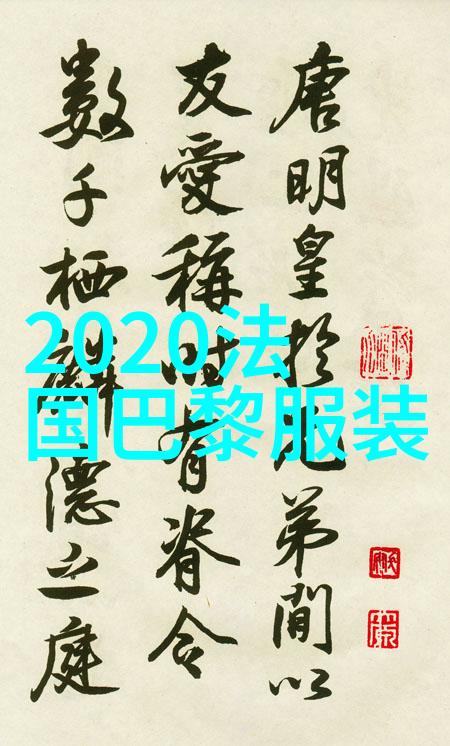 唐明皇於兄弟間以
友愛稱時有脊令
數千栖麟德之庭
2020法
国巴黎服装